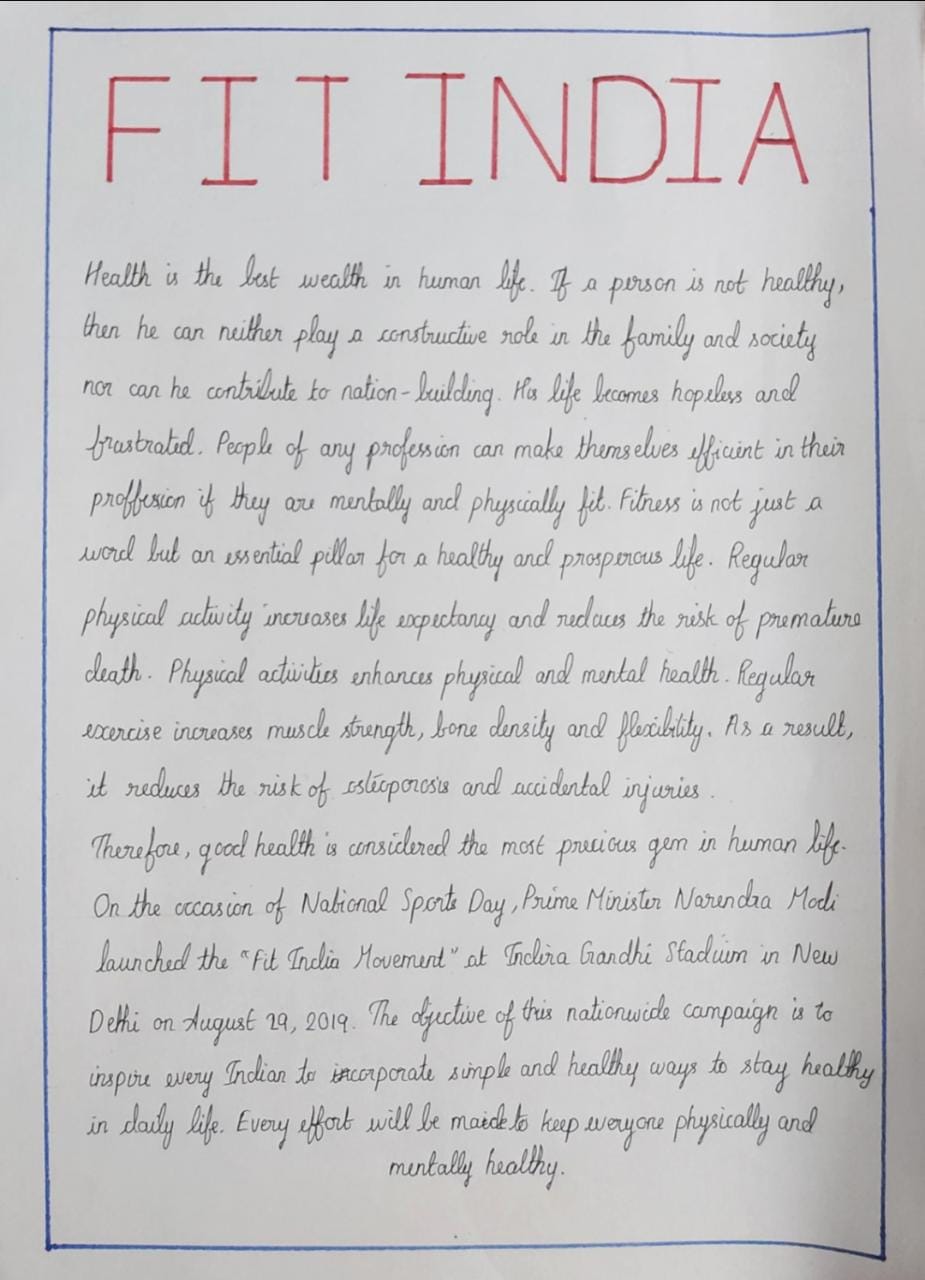 FIT INDIA
Health is the best wealth in human life. If a person is not healthy,
then he can neither play a constructive role in the family and society
nor can he contribute to nation-building. His life becomes hopeless and
frustrated. People of any profession can make themselves efficient in their
proffesion if they are mentally and physically fit. Fitness is not just a
word but an essential pillar for a healthy and prosperous life. Regular
physical activity increases life expectancy and reduces the risk of premature
death. Physical activities enhances physical and mental health. Regular
exercise increases muscle strength, bone density and flexibility. As a result,
it reduces the risk of osteoporosis and accidental injuries.
Therefore, good health is considered the most precious gem in human life.
On the occasion of National Sports Day, Prime Minister Narendra Modi
launched the "Fit India Movement" at Indira Gandhi Stadium in New
Delhi on August 29, 2019. The objective of this nationwide campaign is to
inspire every Indian to incorporate simple and healthy ways to stay healthy
in daily life. Every effort will be made to keep everyone physically and
mentally healthy.